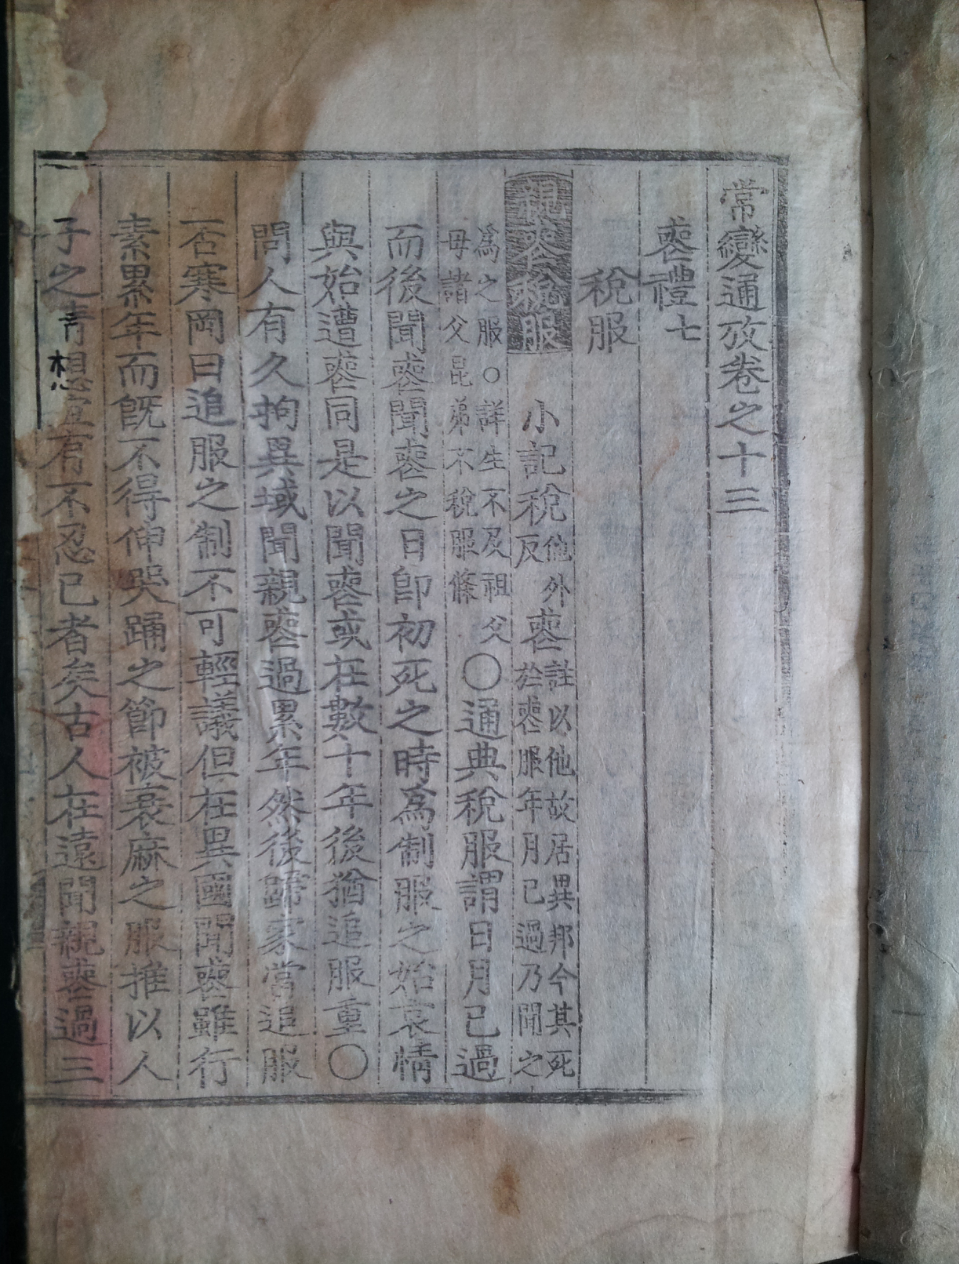 常變通攷卷之十三
喪禮七
稅服
親喪稅服 小記稅他外反喪註以他故居異邦今其死於喪服年月已過乃聞之
爲之服○詳生不及祖父母諸父昆弟不稅服條○通典稅服謂日月已過
而後聞喪聞喪之日卽初死之時爲制服之始哀情
與始遭喪同是以聞喪或在數十年後猶追服重○
問人有久拘異域聞親喪過累年然後歸家當追服
否寒岡曰追服之制不可輕議但在異國聞喪雖行
素累年而旣不得伸哭踊之節被衰麻之服推以人
子之情想宜有不忍已者矣古人在遠聞親喪過三